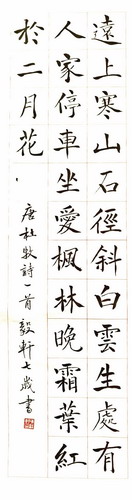 遠上寒山石徑斜白雲生處有
人家停車坐愛楓林晚霜葉紅
於二月花
唐杜牧詩一首 毅軒七歲書